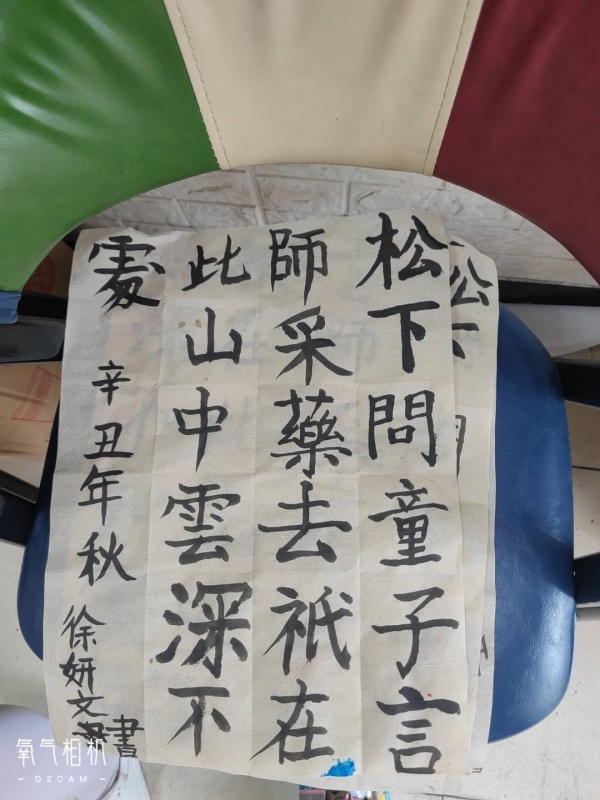 松下問童子言
師采藥去祇在
此山中雲深不
處 辛丑年秋 徐妍文書
氧气相机
- O2CAM -